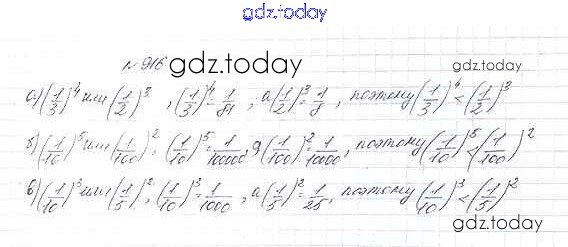 gdz.today
№ 916
gdz.today
а) (1/3)^4 или (1/2)^3, (1/3)^4 = 1/81, а (1/2)^3 = 1/8, поэтому (1/3)^4 < (1/2)^3
б) (1/10)^5 или (1/100)^2, (1/10)^5 = 1/10000, а (1/100)^2 = 1/10000, поэтому (1/10)^5 < (1/100)^2
в) (1/10)^3 или (1/5)^2, (1/10)^3 = 1/1000, а (1/5)^2 = 1/25, поэтому (1/10)^3 < (1/5)^2
gdz.today